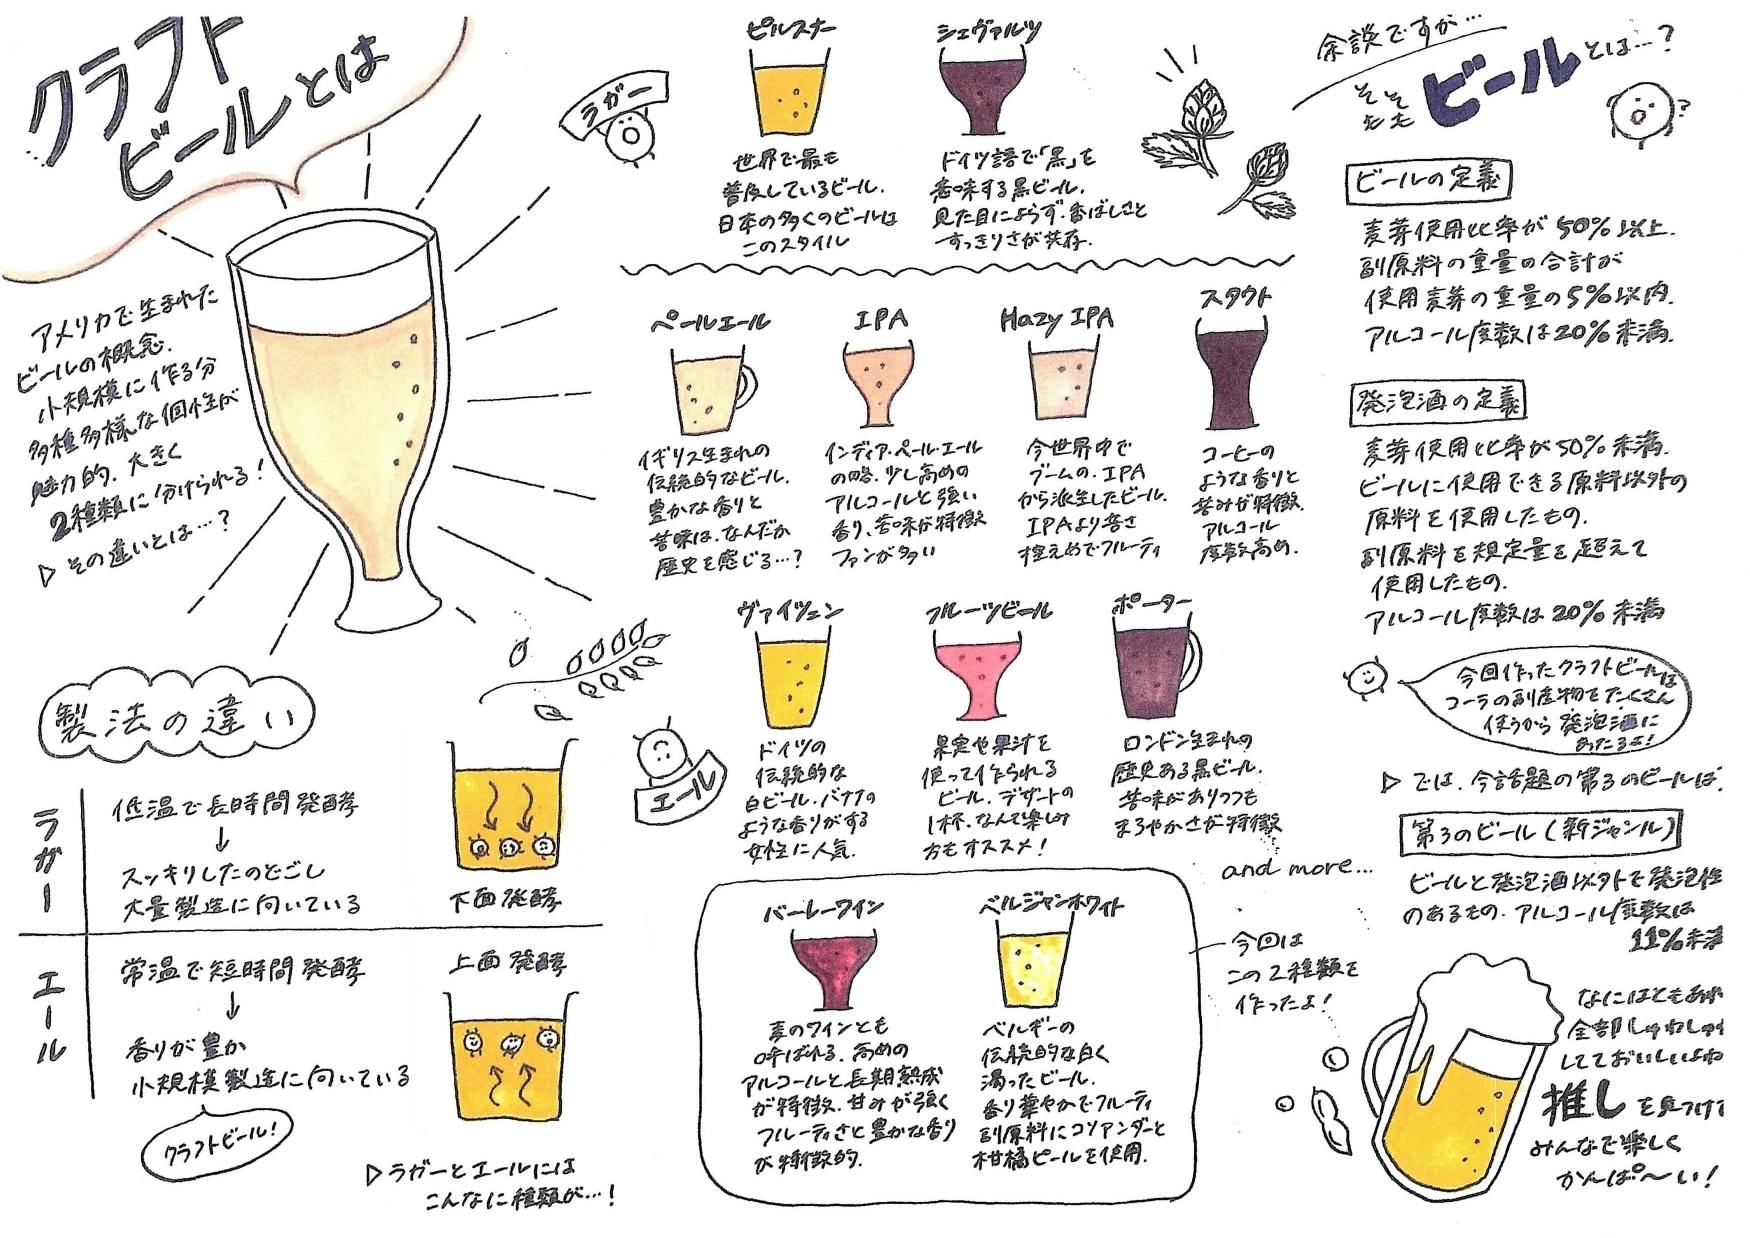 クラフト
ビールとは
アメリカで生まれた
ビールの概念.
小規模に作る分
多種多様な個性が
魅力的.大きく
2種類に分けられる!
▷その違いとは…?
製法の違い
ラガー
低温で長時間発酵
↓
スッキリしたのどごし
大量製造に向いている
下面発酵
エール
常温で短時間発酵
↓
香りが豊か
小規模製造に向いている
クラフトビール!
上面発酵
▷ラガーとエールには
こんなに種類が…!
ラガー
ピルスナー
世界で最も
普及しているビール.
日本の多くのビールは
このスタイル
シュヴァルツ
ドイツ語で「黒」を
意味する黒ビール.
見た目によらず.香ばしさと
すっきりさが共存.
ペールエール
イギリス生まれの
伝統的なビール.
豊かな香りと
苦味は.なんだか
歴史を感じる…?
IPA
インディア.ペール.エール
の略.少し高めの
アルコールと強い
香り、苦味が特徴
ファンが多い
Hazy IPA
今世界中で
ブームの.IPA
から派生したビール.
IPAより苦さ
控えめでフルーティ
スタウト
コーヒーの
ような香りと
苦みが特徴.
アルコール
度数高め.
エール
ヴァイツェン
ドイツの
伝統的な
白ビール.バナナの
ような香りがする
女性に人気.
フルーツビール
果実や果汁を
使って作られる
ビール.デザートの
1杯.なんて楽しみ
方もオススメ!
ポーター
ロンドン生まれの
歴史ある黒ビール.
苦味がありつつも
まろやかさが特徴
and more…
バーレーワイン
麦のワインとも
呼ばれる.高めの
アルコールと長期熟成
が特徴.甘みが強く
フルーティさと豊かな香り
が特徴的.
ベルジャンホワイト
ベルギーの
伝統的な白く
濁ったビール.
香り華やかでフルーティ
副原料にコリアンダーと
柑橘ピールを使用.
今回は
この2種類を
作ったよ!
余談ですが…
そもそも
ビールとは…?
ビールの定義
麦芽使用比率が50%以上.
副原料の重量の合計が
使用麦芽の重量の5%以内.
アルコール度数は20%未満.
発泡酒の定義
麦芽使用比率が50%未満.
ビールに使用できる原料以外の
原料を使用したもの.
副原料を規定量を超えて
使用したもの.
アルコール度数は20%未満
今回作ったクラフトビールは
コーラの副産物をたくさん
使うから発泡酒に
あたるよ!
▷では.今話題の第3のビールは.
第3のビール(新ジャンル)
ビールと発泡酒以外で発泡性
のあるもの.アルコール度数は
11%未満
なにはともあれ
全部しゅわしゅわ
してておいしいよね
推しを見つけて
みんなで楽しく
かんぱ〜い!